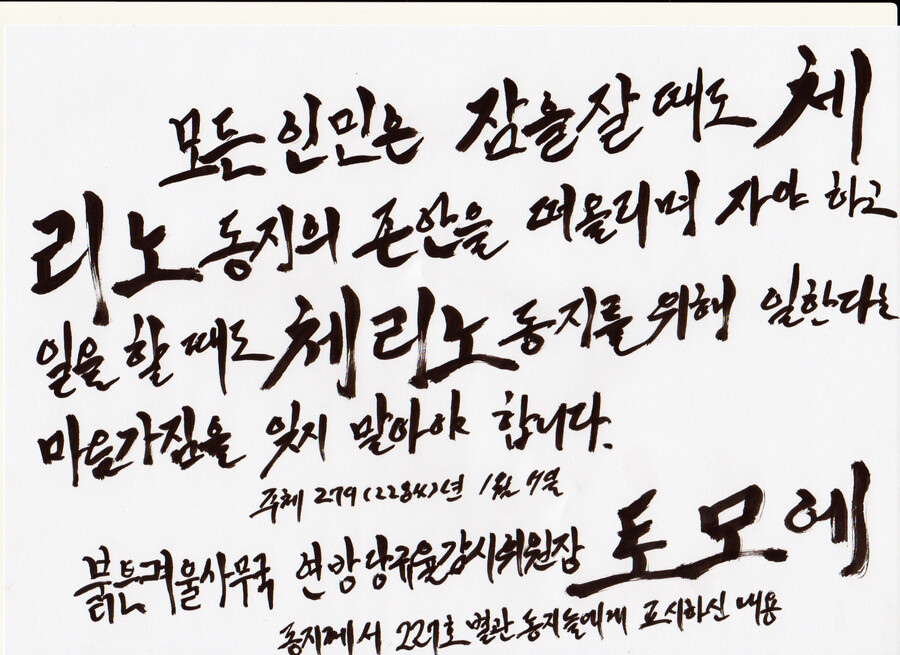 모든 인민은 잠을 잘 때도 체
리노 동지의 존안을 떠올리며 자야 하고
일을 할 때도 체리노 동지를 위해 일한다는
마음가짐을 잊지 말아야 합니다.
주체 279(2284)년 1월 4일
붉은겨울사무국 연방당규율감시위원장 토모에
동지께서 227호 별관 동지들에게 표시하신 내용